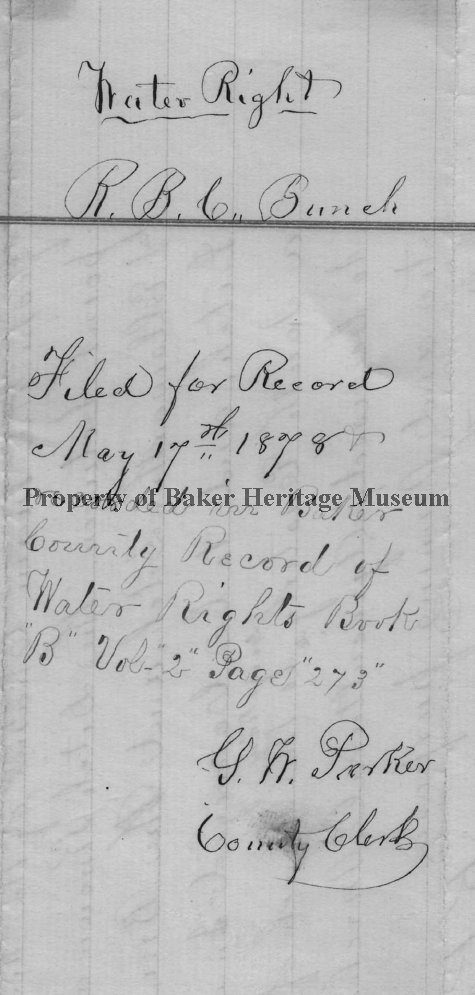 Water Right
R. B. C. Bunch
Filed for Record
May 17th 1878 &
Property of Baker Heritage Museum
recorded in Baker
County Record of
Water Rights Book
"B" Vol "2" Page "273"
G. W. Parker
County Clerk